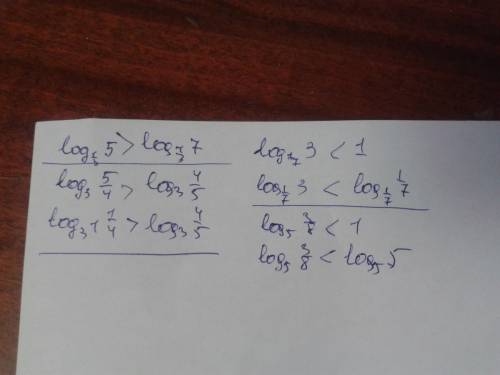 log_{1/3} 5 > log_{1/3} 7
log_3 5/4 > log_3 4/5
log_3 1 1/4 > log_3 4/5
log_{1/7} 3 < 1
log_{1/7} 3 < log_{1/7} 1/7
log_5 3/8 < 1
log_5 3/8 < log_5 5